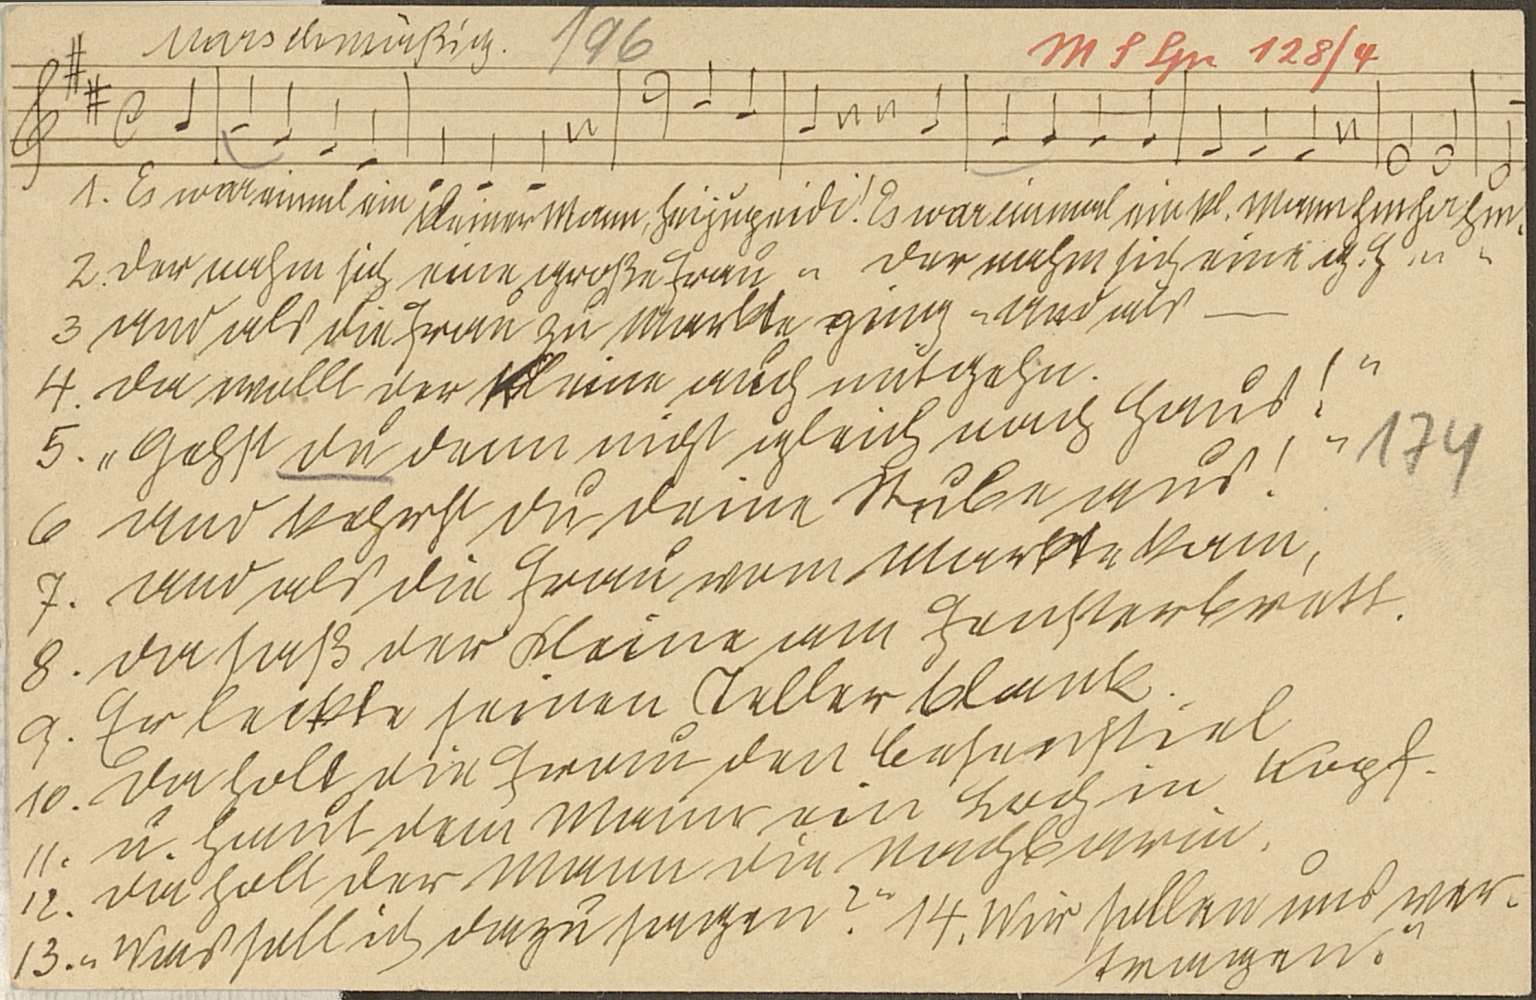 Marschmäßig. 196
M S Spr 128/4
1. Es war einmal ein kleiner Mann, heijupeidi! Es war einmal ein kl. Mann hm ha hm.
2. Der nahm sich eine große Frau " Der nahm sich eine g. F " "
3 Und als die Frau zu Markte ging " Und als —
4. Da wollt der Kleine auch mitgehn.
5. „Gehst du denn nicht gleich nach Haus!"
6 Und kehrst du deine Stube aus!" 174
7. Und als die Frau vom Markte kam,
8. Da saß der Kleine am Fensterbrett.
9. Er leckte seinen Teller blank.
10. Da holt die Frau den Besenstiel
11. u. haut dem Mann ein Loch in Kopf.
12. Da holt der Mann die Nachbarin.
13. „Was soll ich dazu sagen?" 14. Wir sollen uns ver-
tragen."